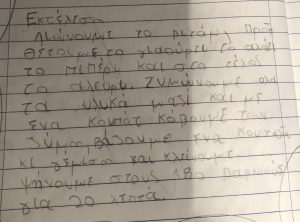 Εκτέλεση
Λιώνουμε το βιτάμ, προσ
θέτουμε το γιαούρτι το αλάτι
το πιπέρι και στο τέλος
το αλεύρι. Ζυμώνουμε όλα
τα υλικά μαζί και με
ένα κουπάτ κάβουμε την
ζύμη βάζουμε ένα κουταλ
κι γέμιση και κλείνουμε
ψήνουμε στους 180 βαθμούς
για 20 λεπτά.